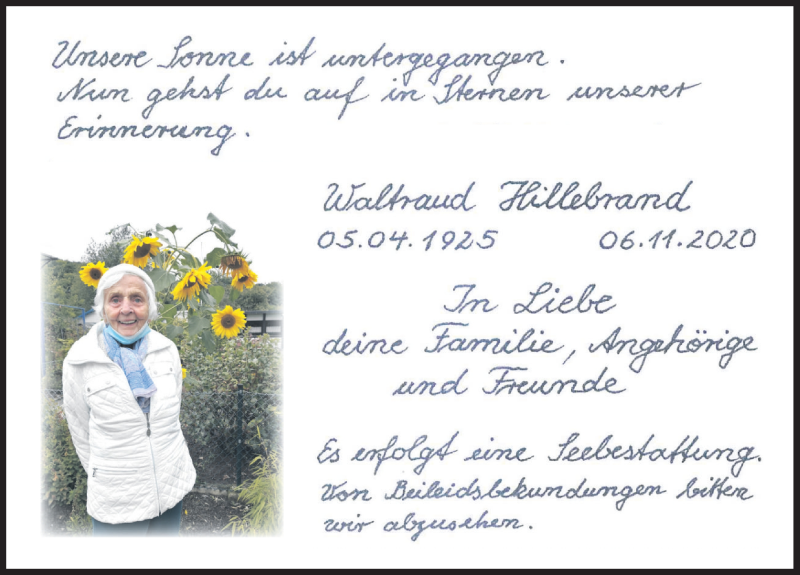 Unsere Sonne ist untergegangen.
Nun gehst du auf in Sternen unserer
Erinnerung.
Waltraud Hillebrand
05.04.1925 06.11.2020
In Liebe
deine Familie, Angehörige
und Freunde
Es erfolgt eine Seebestattung.
Von Beileidsbekundungen bitten
wir abzusehen.